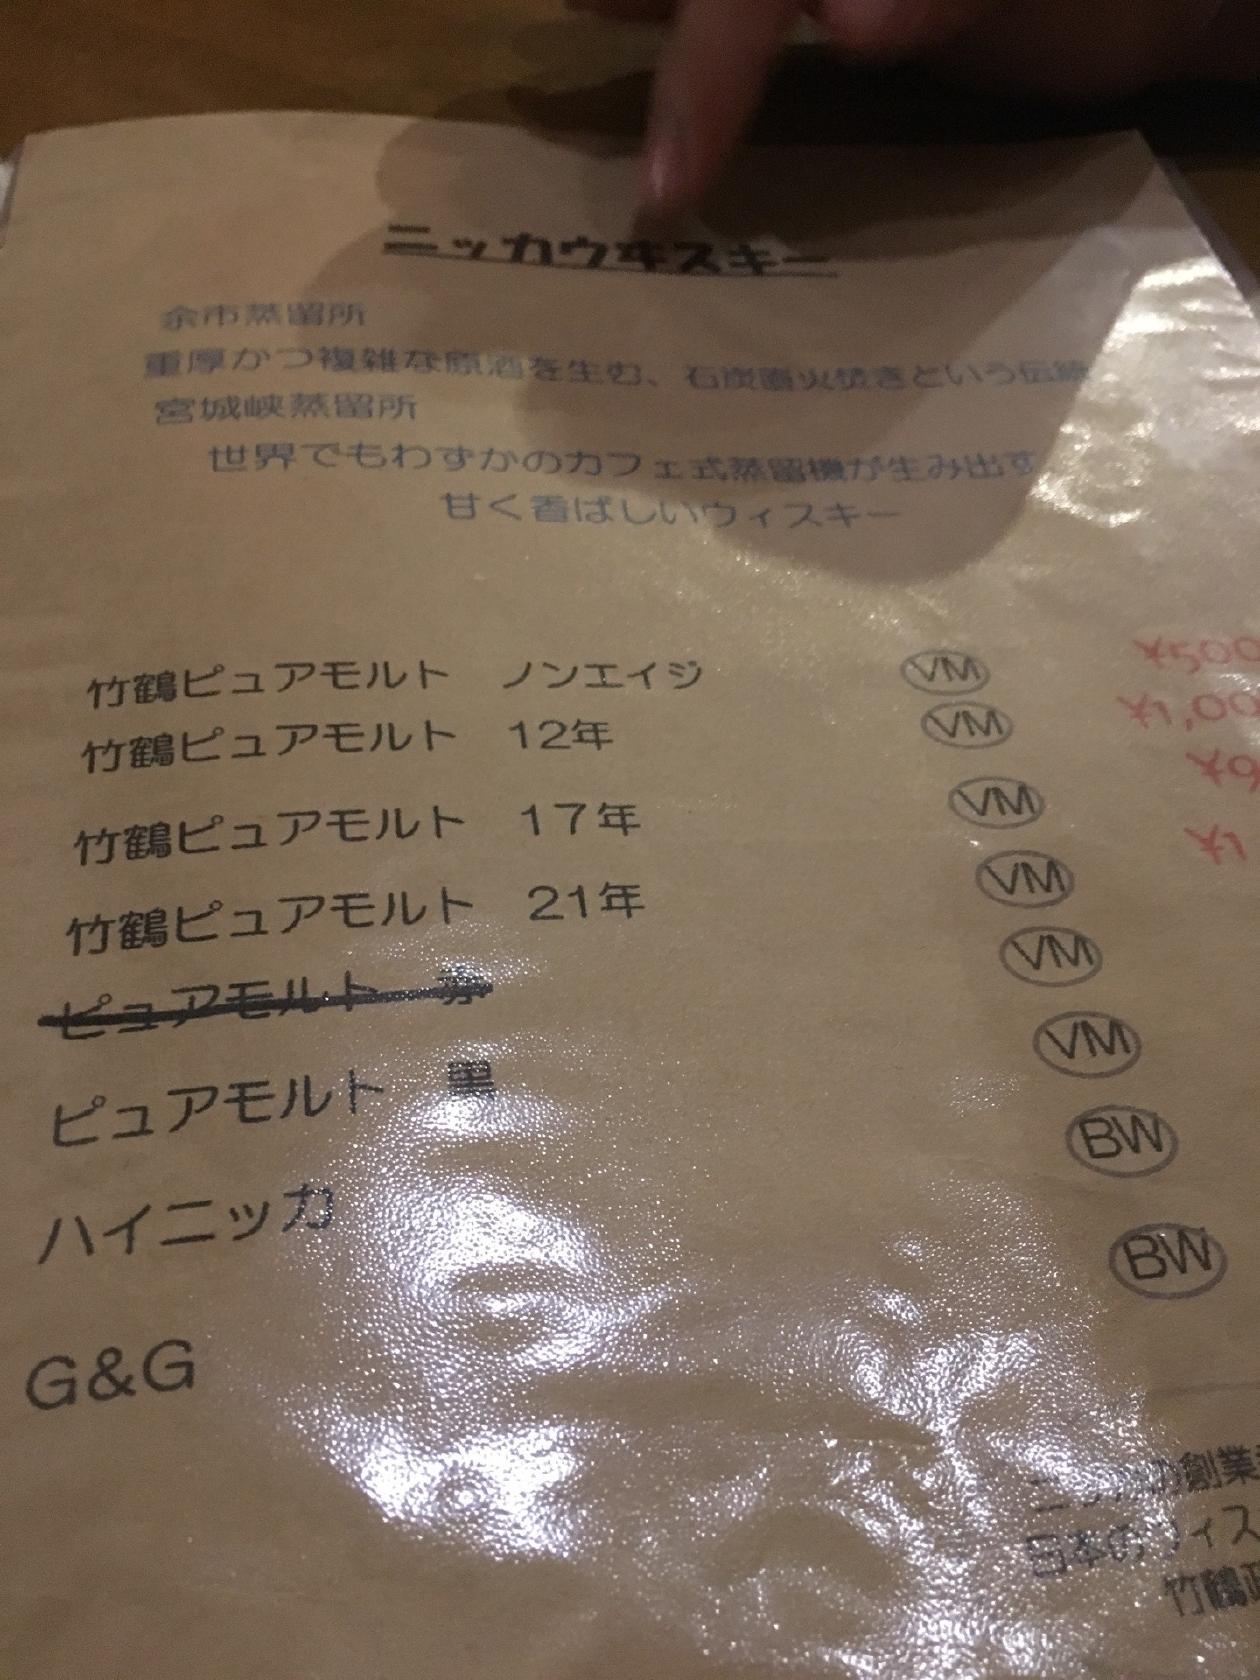 ニッカウヰスキー
余市蒸留所
重厚かつ複雑な原酒を生む、石炭直火焚きという伝統
宮城峡蒸留所
世界でもわずかのカフェ式蒸留機が生み出す
甘く香ばしいウィスキー
竹鶴ピュアモルト ノンエイジ VM ¥500
竹鶴ピュアモルト 12年 VM ¥1,00
竹鶴ピュアモルト 17年 VM ¥9
竹鶴ピュアモルト 21年 VM ¥1
ピュアモルト 赤 VM
ピュアモルト 黒 VM
ハイニッカ BW
G&G BW
ニッカの創業
日本のウィス
竹鶴政